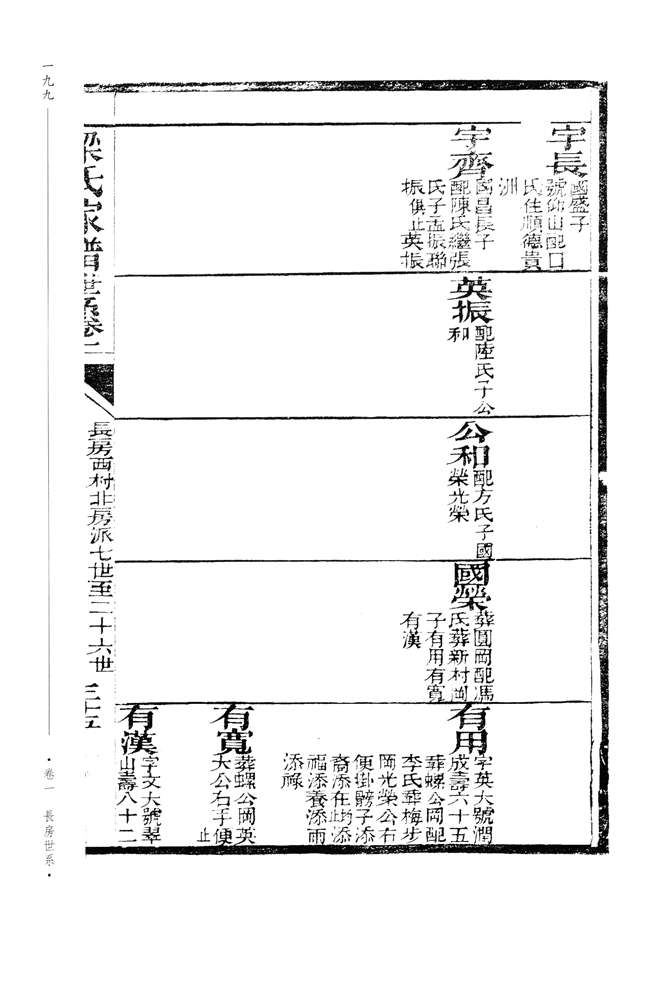 宇長
國盛子
號仰山配口
氏住順德貴
洲
宇齊
國昌長子
配陳氏繼張
氏子孟振聯
振俱止英振
英振
配陸氏子公
和
公和
配方氏子國
榮光榮
國榮
葬圓岡配馮
氏葬新村岡
子有用有寬
有漢
有用
字英大號潤
成壽六十五
葬螺公岡配
李氏葬梅步
岡光榮公右
便掛髈子添
裔添在均添
福添養添雨
添祿
有寬
葬螺公岡英
大公右手便
止
有漢
字文大號翠
山壽八十二
梁氏家譜世系卷一
長房西村北房派七世至二十六世
三十五
一九九
·卷一 長房世系·